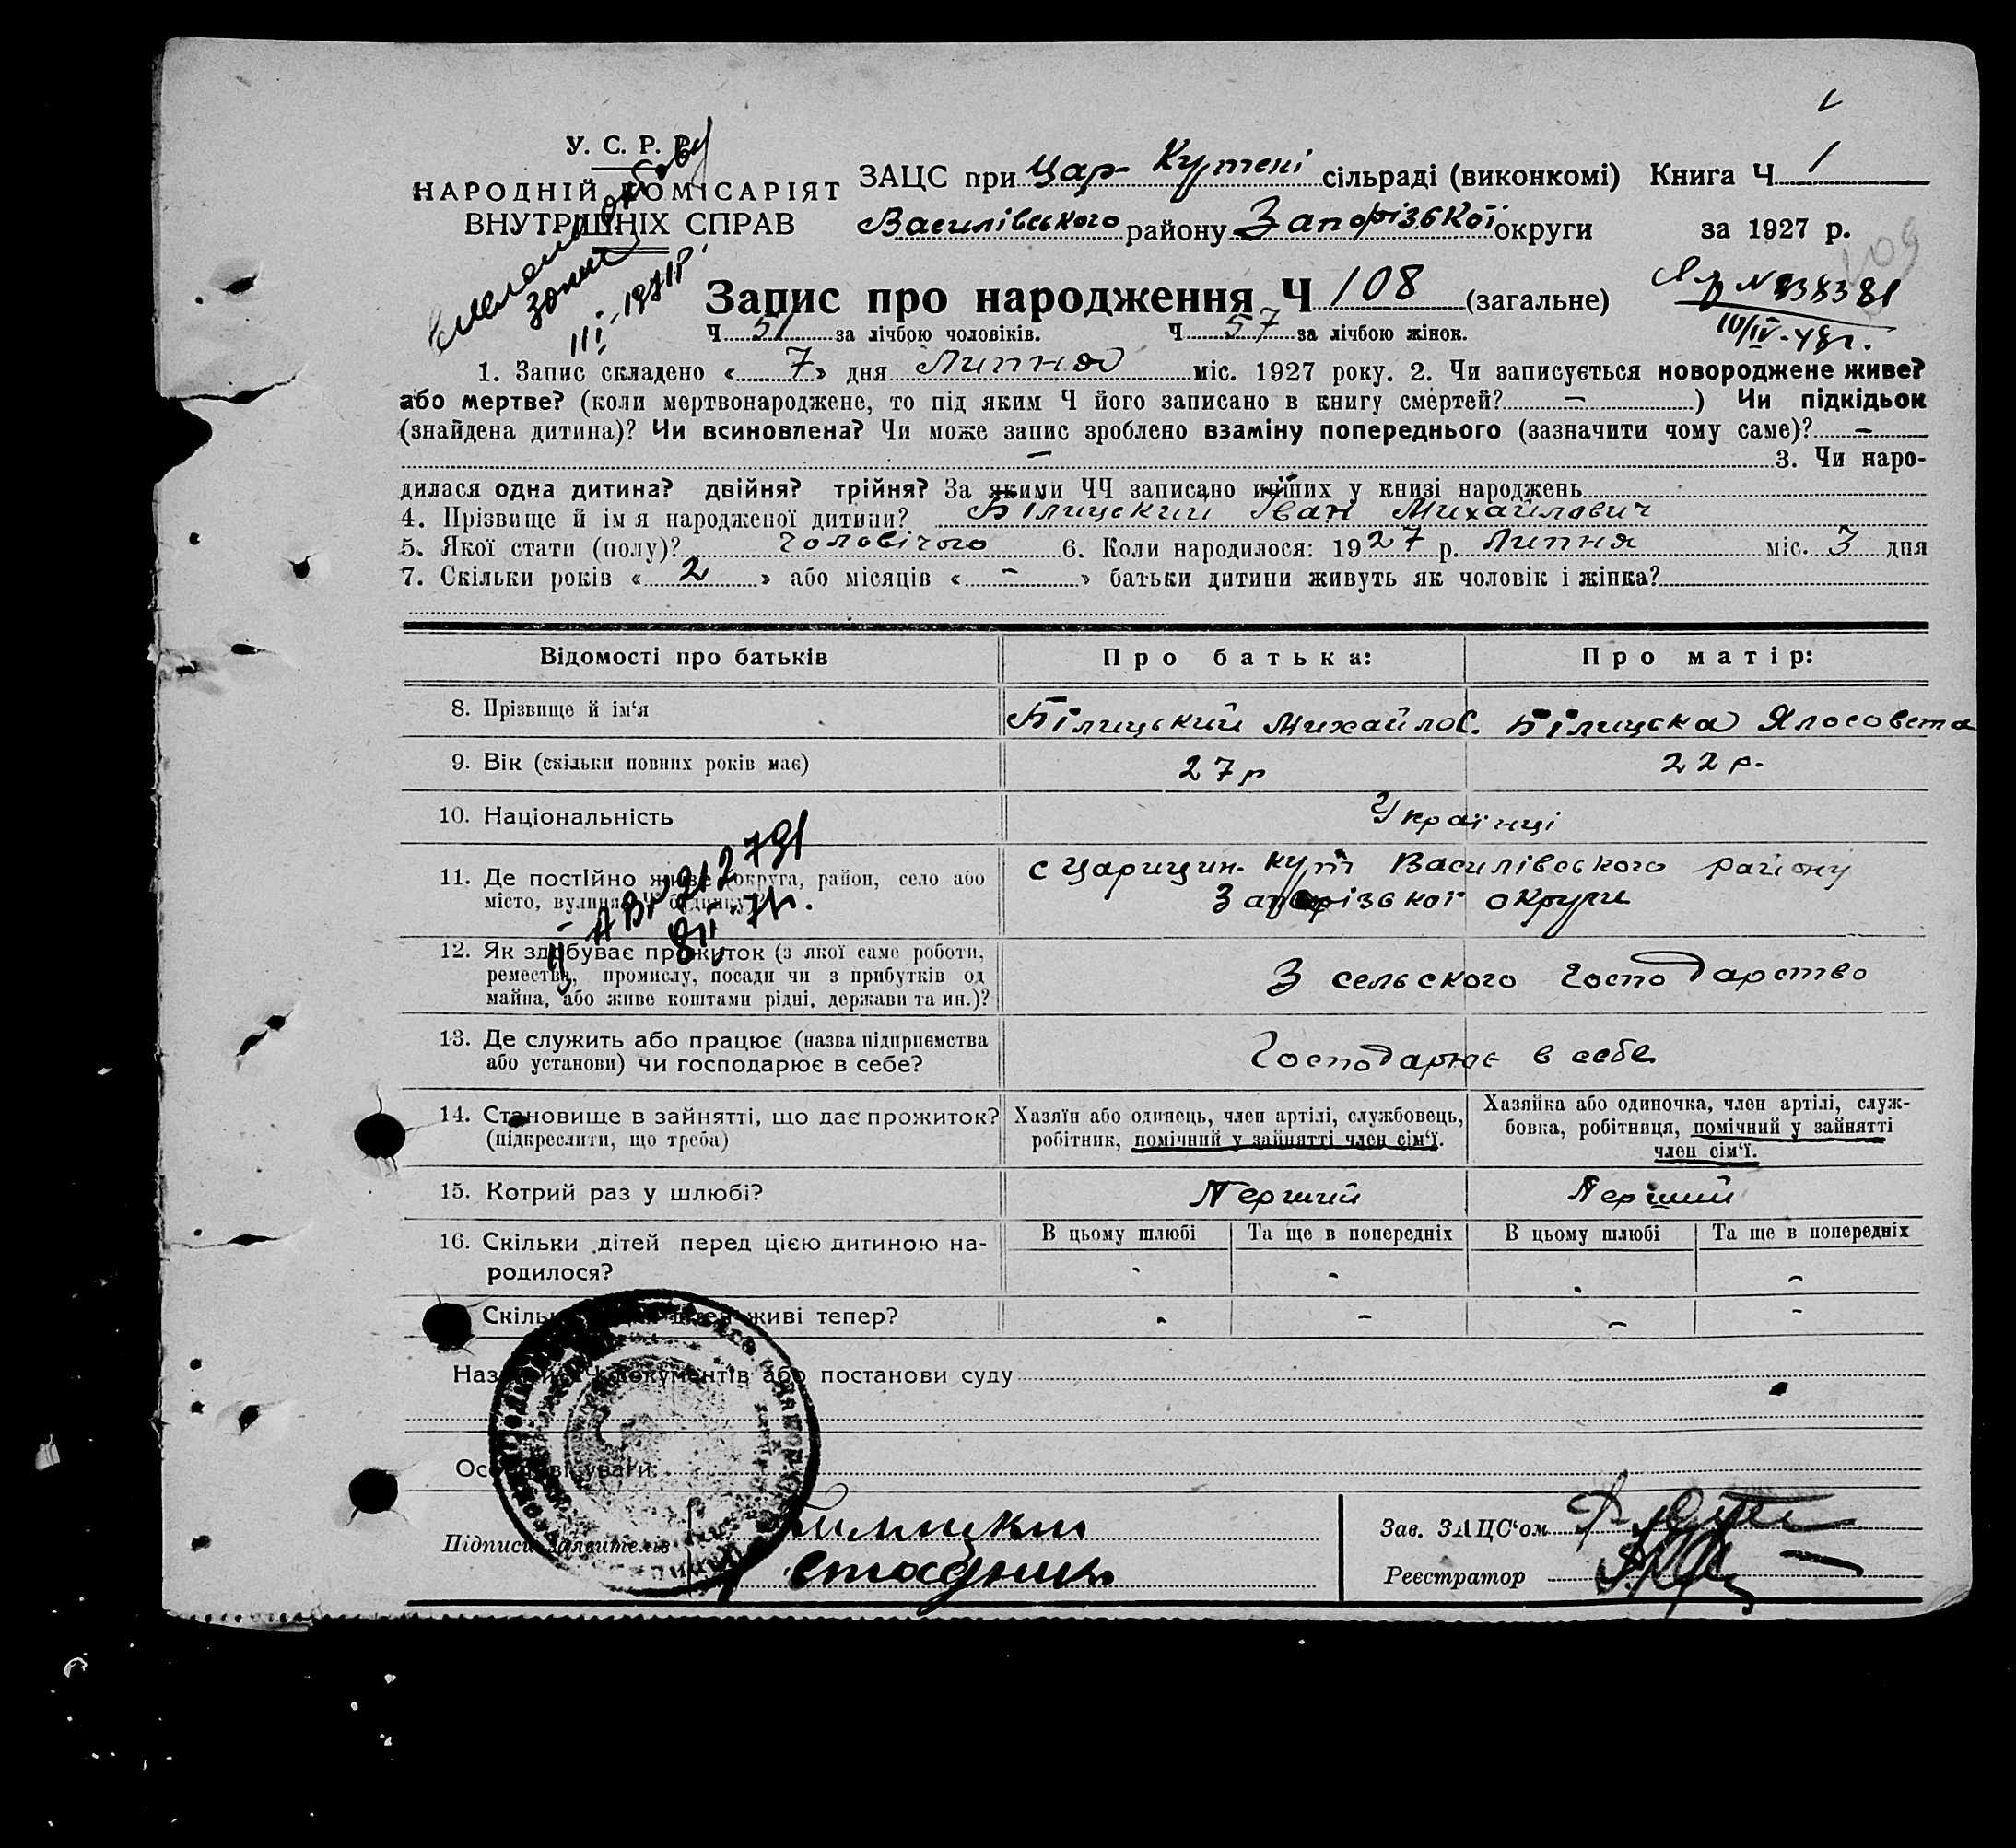 У. С. Р. Р.
НАРОДНІЙ КОМІСАРІЯТ
ВНУТРІШНІХ СПРАВ
ЗАЦС при Цар- Кутені сільраді (виконкомі) Книга Ч 1
Василівського району Запорізької округи за 1927 р.
109
Запис про народження Ч 108 (загальне)
Ч 51 за лічбою чоловіків. Ч 57 за лічбою жінок.
III-1971р.
№838381
10/IV-48г.
1. Запис складено « 7 » дня Липня міс. 1927 року. 2. Чи записується новороджене живе?
або мертве? (коли мертвонароджене, то під яким Ч його записано в книгу смертей? – ) Чи підкідьок
(знайдена дитина)? Чи всиновлена? Чи може запис зроблено взаміну попереднього (зазначити чому саме)? –
– 3. Чи наро-
дилася одна дитина? двійня? трійня? За якими ЧЧ записано инших у книзі народжень
4. Прізвище й ім я народженої дитини? Білицский Іван Михайлович
5. Якої стати (полу)? Чоловічого 6. Коли народилося: 1927 р. Липня міс. 3 дня
7. Скільки років « 2 » або місяців « - » батьки дитини живуть як чоловік і жінка?
Відомості про батьків Про батька: Про матір:
8. Прізвище й ім‘я Білицький Михайло С. Біліцска Ялосовета
9. Вік (скільки повних років має) 27р 22р.
10. Національність Українці
11. Де постійно живе (округа, район, село або с Царицин. Кут Василівського району
місто, вулиця, Ч будинку)? Запорізької округи
АР 212791
8/II-71г.
12. Як здобуває прожиток (з якої саме роботи,
ремества, промислу, посади чи з прибутків од З сельского господарство
майна, або живе коштами рідні, держави та ин.)?
13. Де служить або працює (назва підприємства
або установи) чи господарює в себе? Господарює в себе
14. Становище в зайнятті, що дає прожиток? Хазяїн або одинець, член артілі, службовець, Хазяйка або одиночка, член артілі, служ-
(підкреслити, що треба) робітник, помічний у зайнятті член сім‘ї. бовка, робітниця, помічний у зайнятті
член сім‘ї.
15. Котрий раз у шлюбі? Перший Перший
16. Скільки дітей перед цією дитиною на- В цьому шлюбі Та ще в попередніх В цьому шлюбі Та ще в попередніх
родилося? - - - -
Скільки дітей живі тепер? - - - -
Назва й Ч документів або постанови суду
Особливі уваги:
Підписи заявителів Зав. ЗАЦС‘ом
Стадник Реєстратор